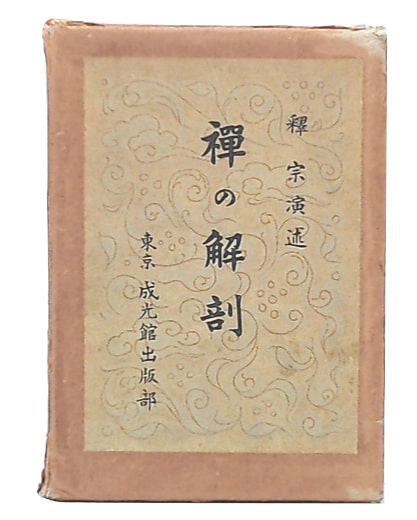 釋宗演述
禪の解剖
東京 成光館出版部